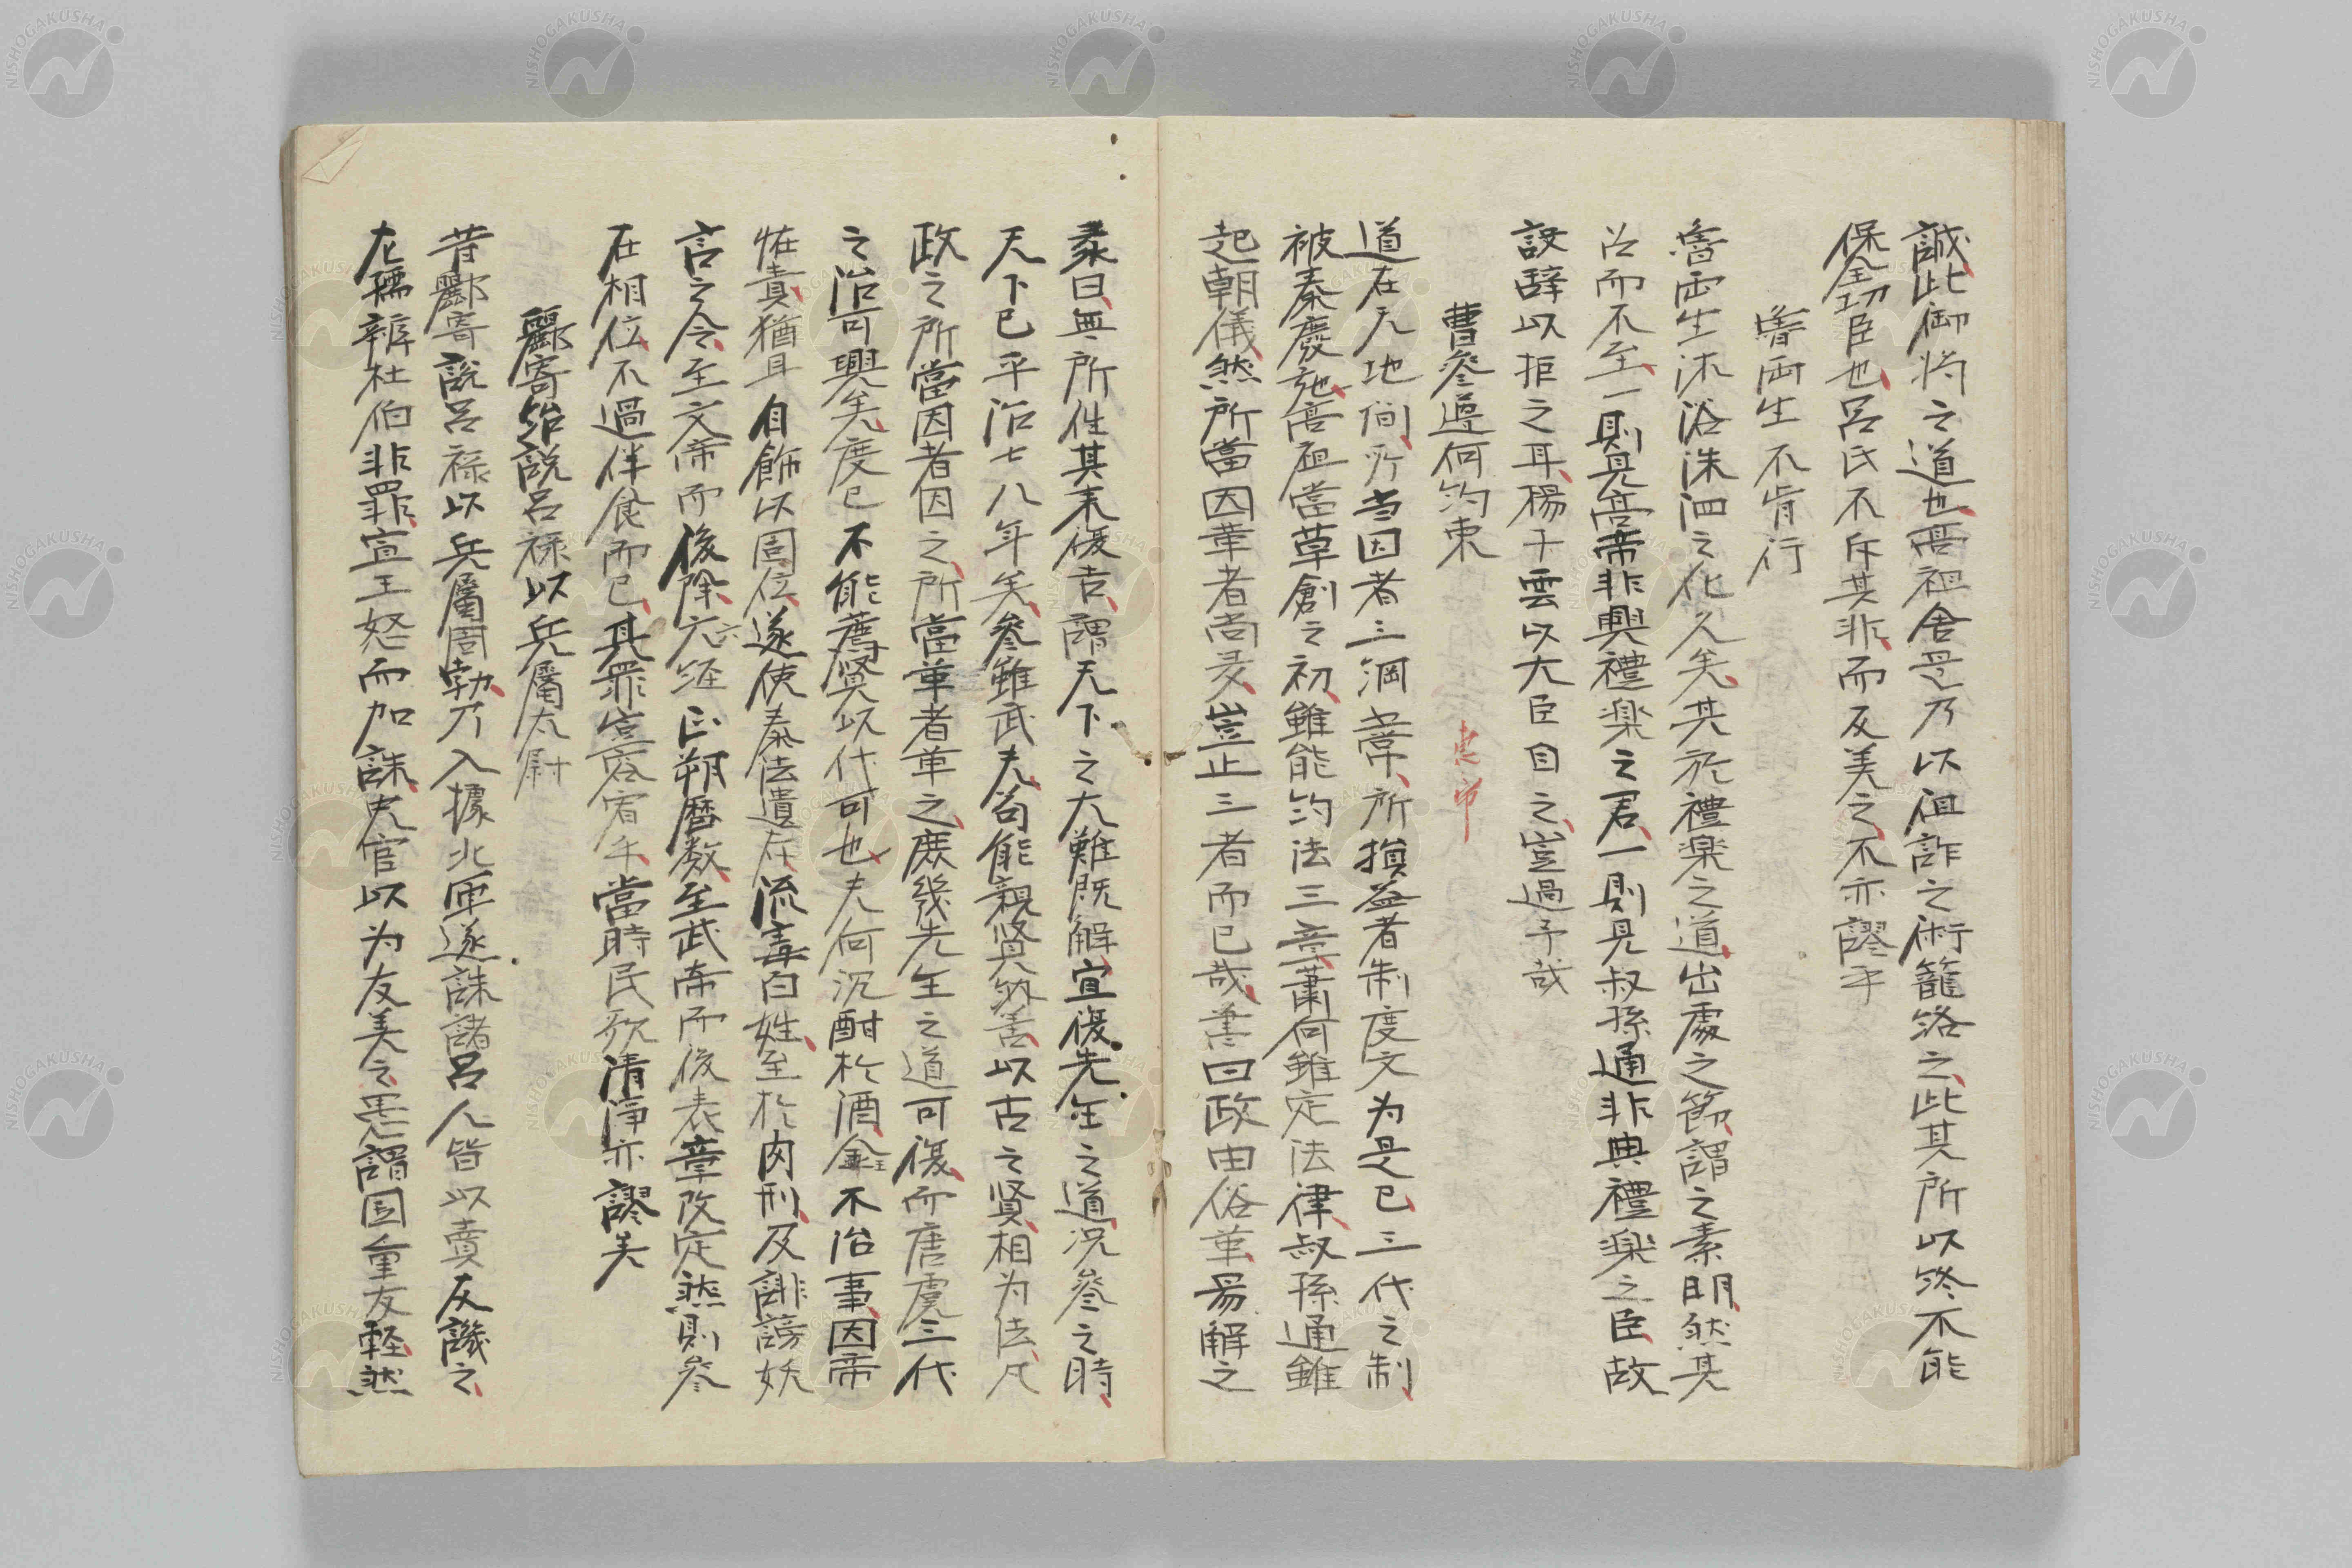 誠此御将之道也高祖舍是乃以狙詐之術籠絡之此其所以終不能
保全功臣也呂氏不斥其非而反美之不亦謬乎
魯両生不肯行
魯両生沐浴洙泗之化久矣其於禮楽之道出處之節謂之素明然其
召而不至一則見高帝非興禮楽之君一則見叔孫通非典禮楽之臣故
設辞以拒之耳楊子雲以大臣目之豈過予哉
曹参遵何約束
恵帝
道在天地間所当因者三綱五常所損益者制度文為是已三代之制
被秦廢弛高祖當草創之初雖能約法三章蕭何雖定法律叔孫通雖
起朝儀然所當因革者尚多豈止三者而已哉書曰政由俗革易解之
彖曰無所往其来復吉謂天下之大難既解宜復先王之道況参之時
天下已平治七八年矣参雖武夫苟能親賢納善以古之賢相为法凡
政之所當因者因之所當革者革之庶幾先王之道可復而唐虞三代
之治可興矣度已不能薦賢以代可也夫何沉酣於酒不治事因帝
怪責猶且自飾以固位遂使秦法遺存流毒百姓至於肉刑及誹謗妖
言之令至文帝而後除六経正朔暦数至武帝而後表章改定然則参
在相位不過伴食而已其罪豈容宥乎當時民歌清浄亦謬矣
酈寄紿説呂禄以兵屬太尉
昔酈寄説呂禄以兵屬周勃乃入據北軍遂誅諸呂人皆以賣友譏之
左孺辨杜伯非罪宣王怒而加誅史官以为友美之悪謂国重友軽然